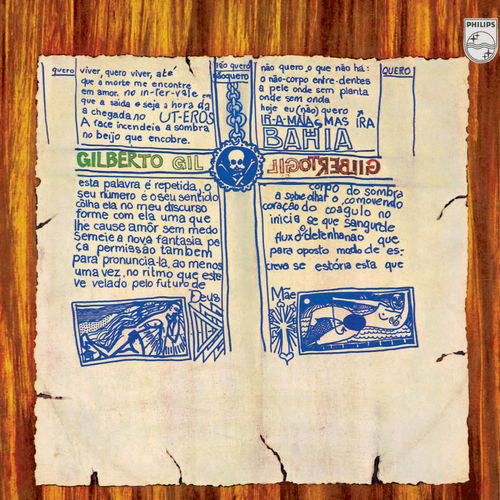 PHILIPS
quero
viver, quero viver, até
que a morte me encontre
em amor. no in-ter-vale em
que a saída e seja a hora da
a chegada no UT-EROS
A face incendeia a sombra
no beijo que encobre.
não quero
nãoquero
não quero o que não há:
o não-corpo entre-dentes
a pele onde sem planta
onde sem onda
hoje eu (não) quero
IR-A-MAIAS MAS IRA
BAHIA
QUERO
GILBERTO GIL
GILBERTO GIL
esta palavra é repetida, o
seu número e o seu sentido
colha ela no meu discurso
forme com ela uma que
lhe cause amôr sem medo
semeie a nova fantasia pe
ça permissão também
para pronuncia-la, ao menos
uma vez, no ritmo que este
ve velado pelo futuro de
Deus
corpo do sombra
a sobe olhar o, comovendo
coração do coagulo no
inicia se que sangurde
flux o detenha não que
para oposto modo de es-
creva se estória esta que
Mãe